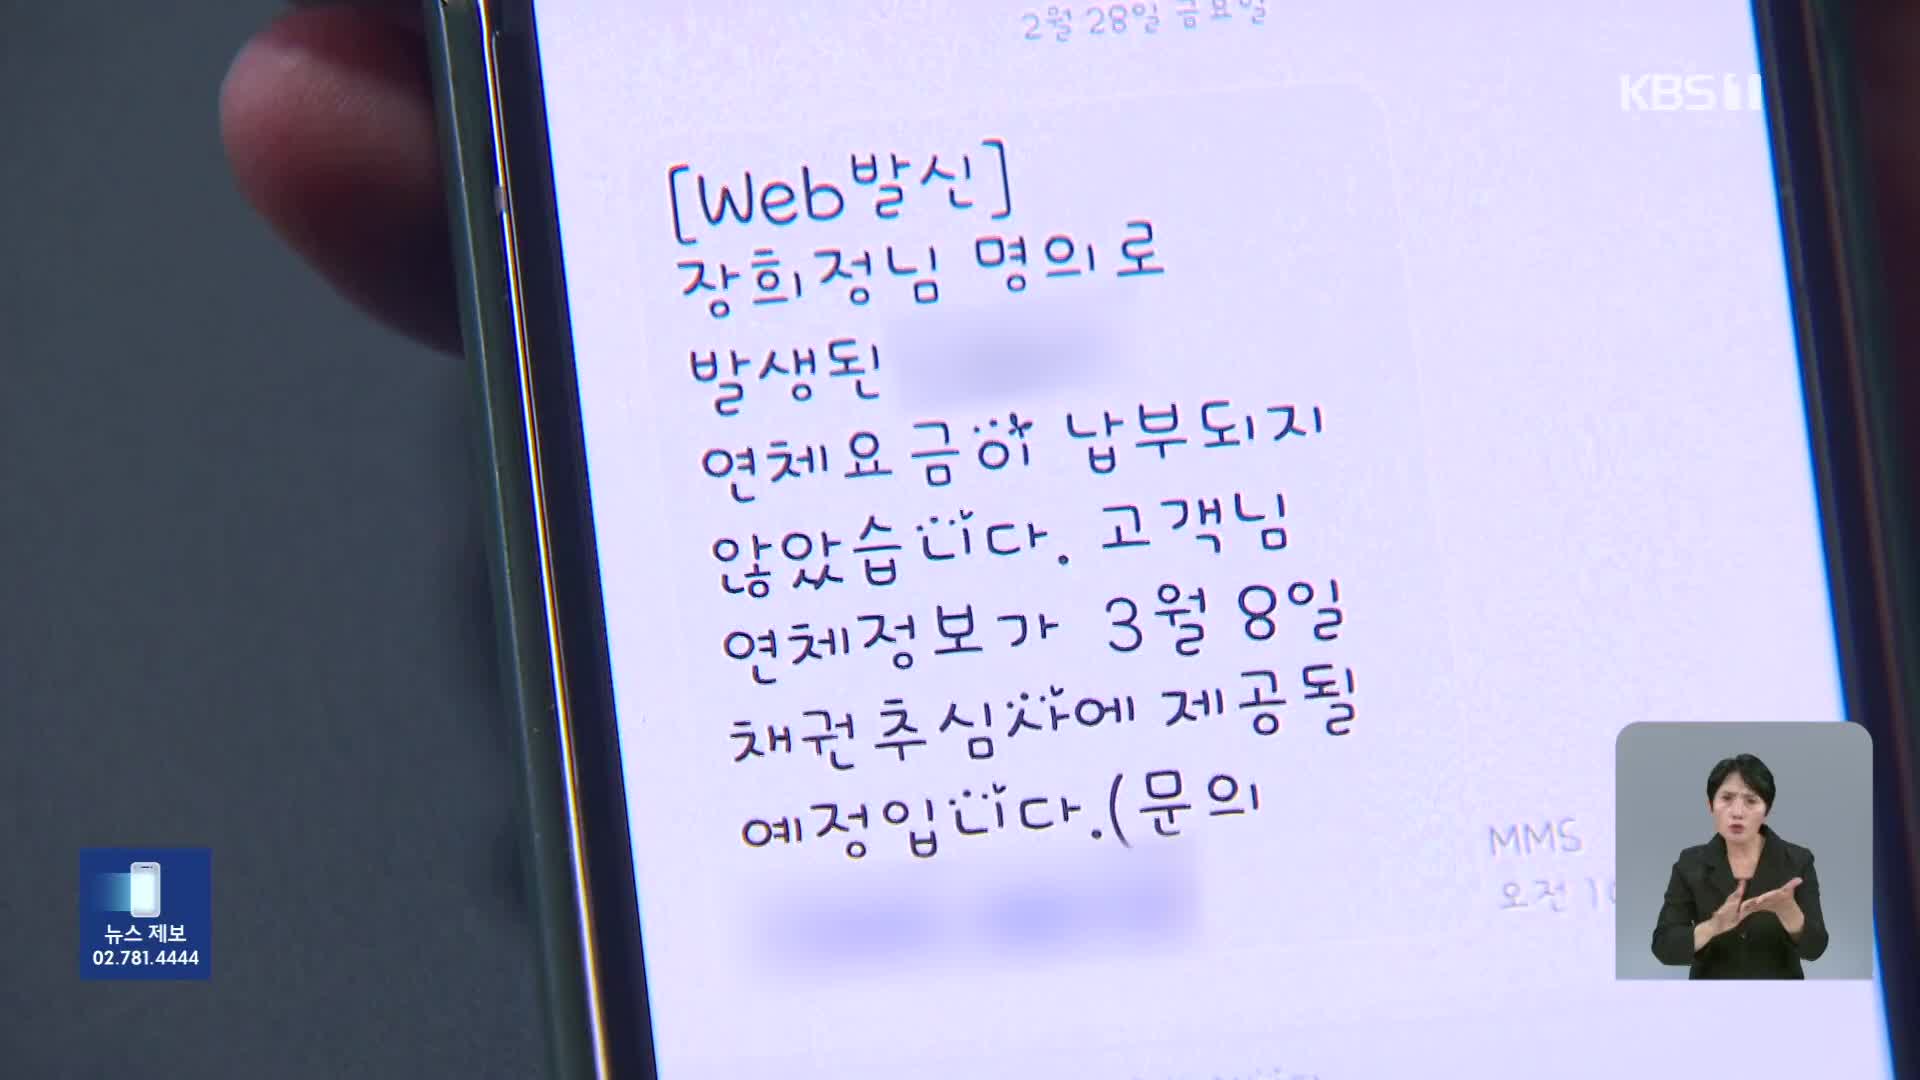 2월 28일 금요일
KBS 1
[Web발신]
장희정님 명의로
발생된
연체요금이 납부되지
않았습니다. 고객님
연체정보가 3월 8일
채권추심사에 제공될
예정입니다.(문의
MMS
오전 10
뉴스 제보
02.781.4444